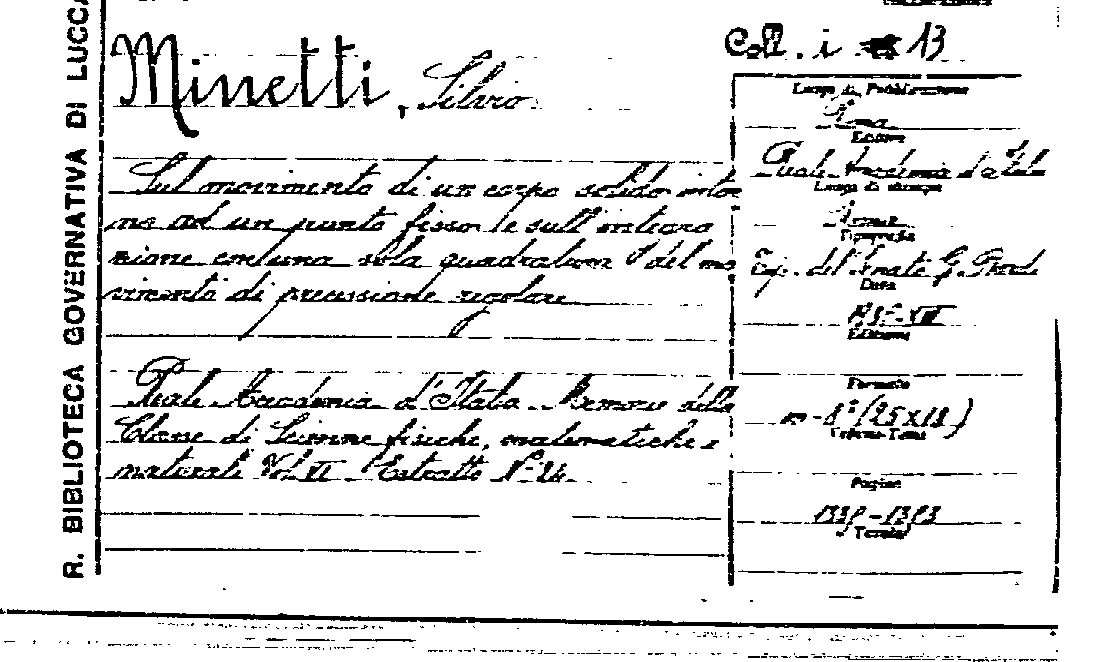 R. BIBLIOTECA GOVERNATIVA DI LUCCA
Coll. i 13
Minetti, Silvio
Sul movimento di un corpo solido intor
no ad un punto fisso e sull'integra
zione con una sola quadratura del mo
vimento di precessione regolare
Reale Accademia d'Italia. Memorie della
Classe di Scienze fisiche, matematiche e
naturali Vol. VI Estratto N° 24
Luogo di Pubblicazione
Roma
Editore
Reale Accademia d'Italia
Luogo di stampa
Roma
Tipografia
Tip. del Senato G. Bardi
Data
Edizione
Formato
m-8° (25x18)
Volume-Tomo
Pagine
Tavole